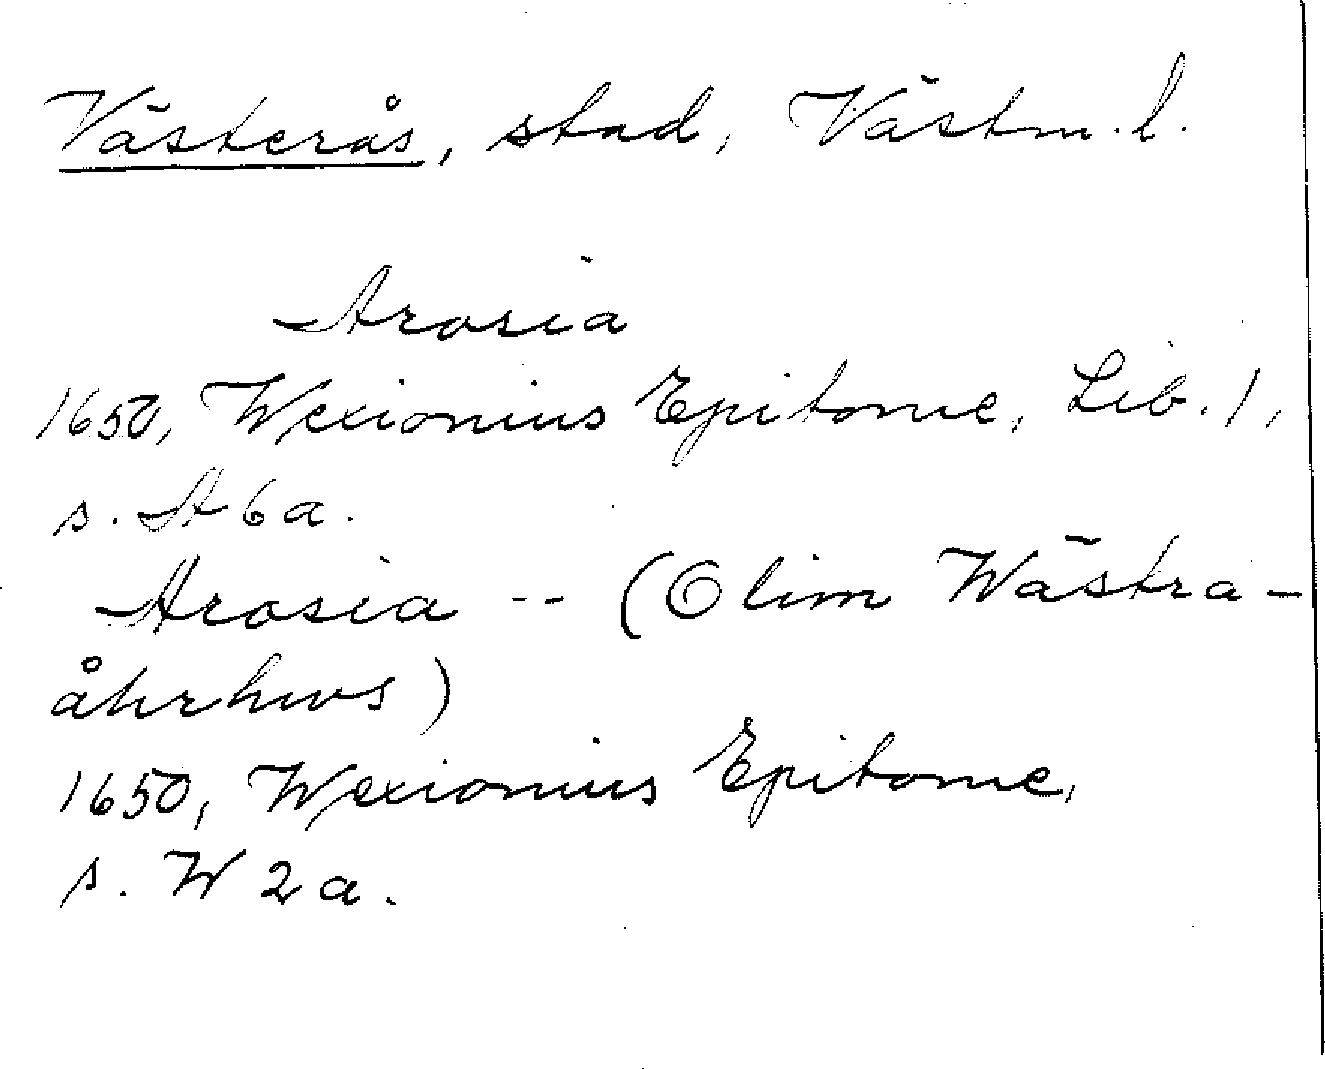 Västerås, stad, Västm. l.
Arosia
1650, Wexionius Epitome, Lib. 1,
s. A 6 a.
Arosia -- (Olim Wästra-
åhrhws)
1650, Wexionius Epitome,
s. W 2 a.